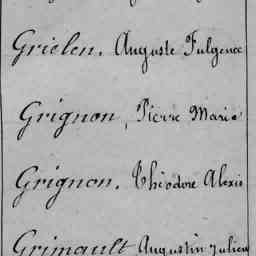 Grielen. Auguste Fulgence
Grignon, Pierre Marie
Grignon. Théodore Alexis
Grimault Augustin Julien